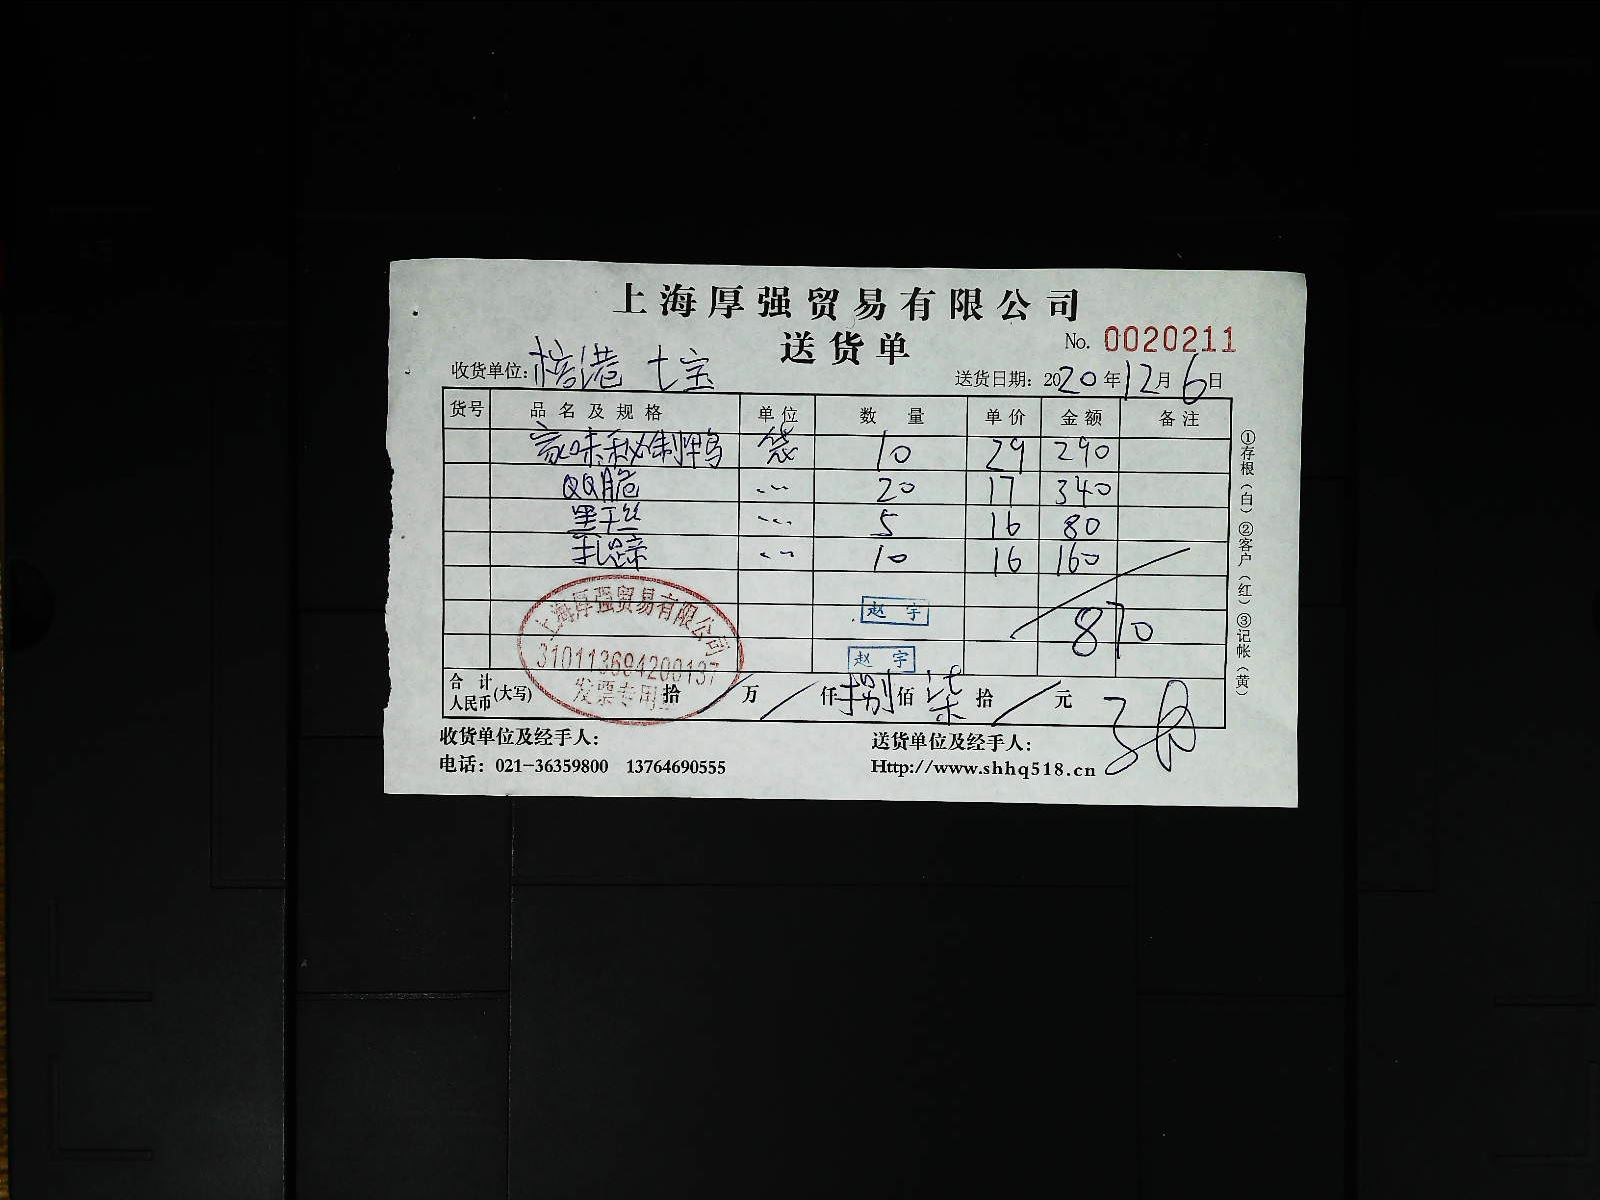 上海厚强贸易有限公司
送货单
No. 0020211
收货单位: 港 七宝
送货日期: 2020年12月6日
货号 品名及规格 单位 数量 单价 金额 备注
家味秘制鸭 袋 10 29 290
QQ脆 〃 20 17 340
黑干丝 〃 5 16 80
扎蹄 〃 10 16 160
870
赵宇
赵宇
上海厚强贸易有限公司
310113694200137
发票专用章
合计人民币(大写) 拾 / 万 / 仟 捌 佰 柒 拾 / 元
收货单位及经手人:
送货单位及经手人:
电话: 021-36359800 13764690555
Http://www.shhq518.cn
①存根(白)②客户(红)③记帐(黄)